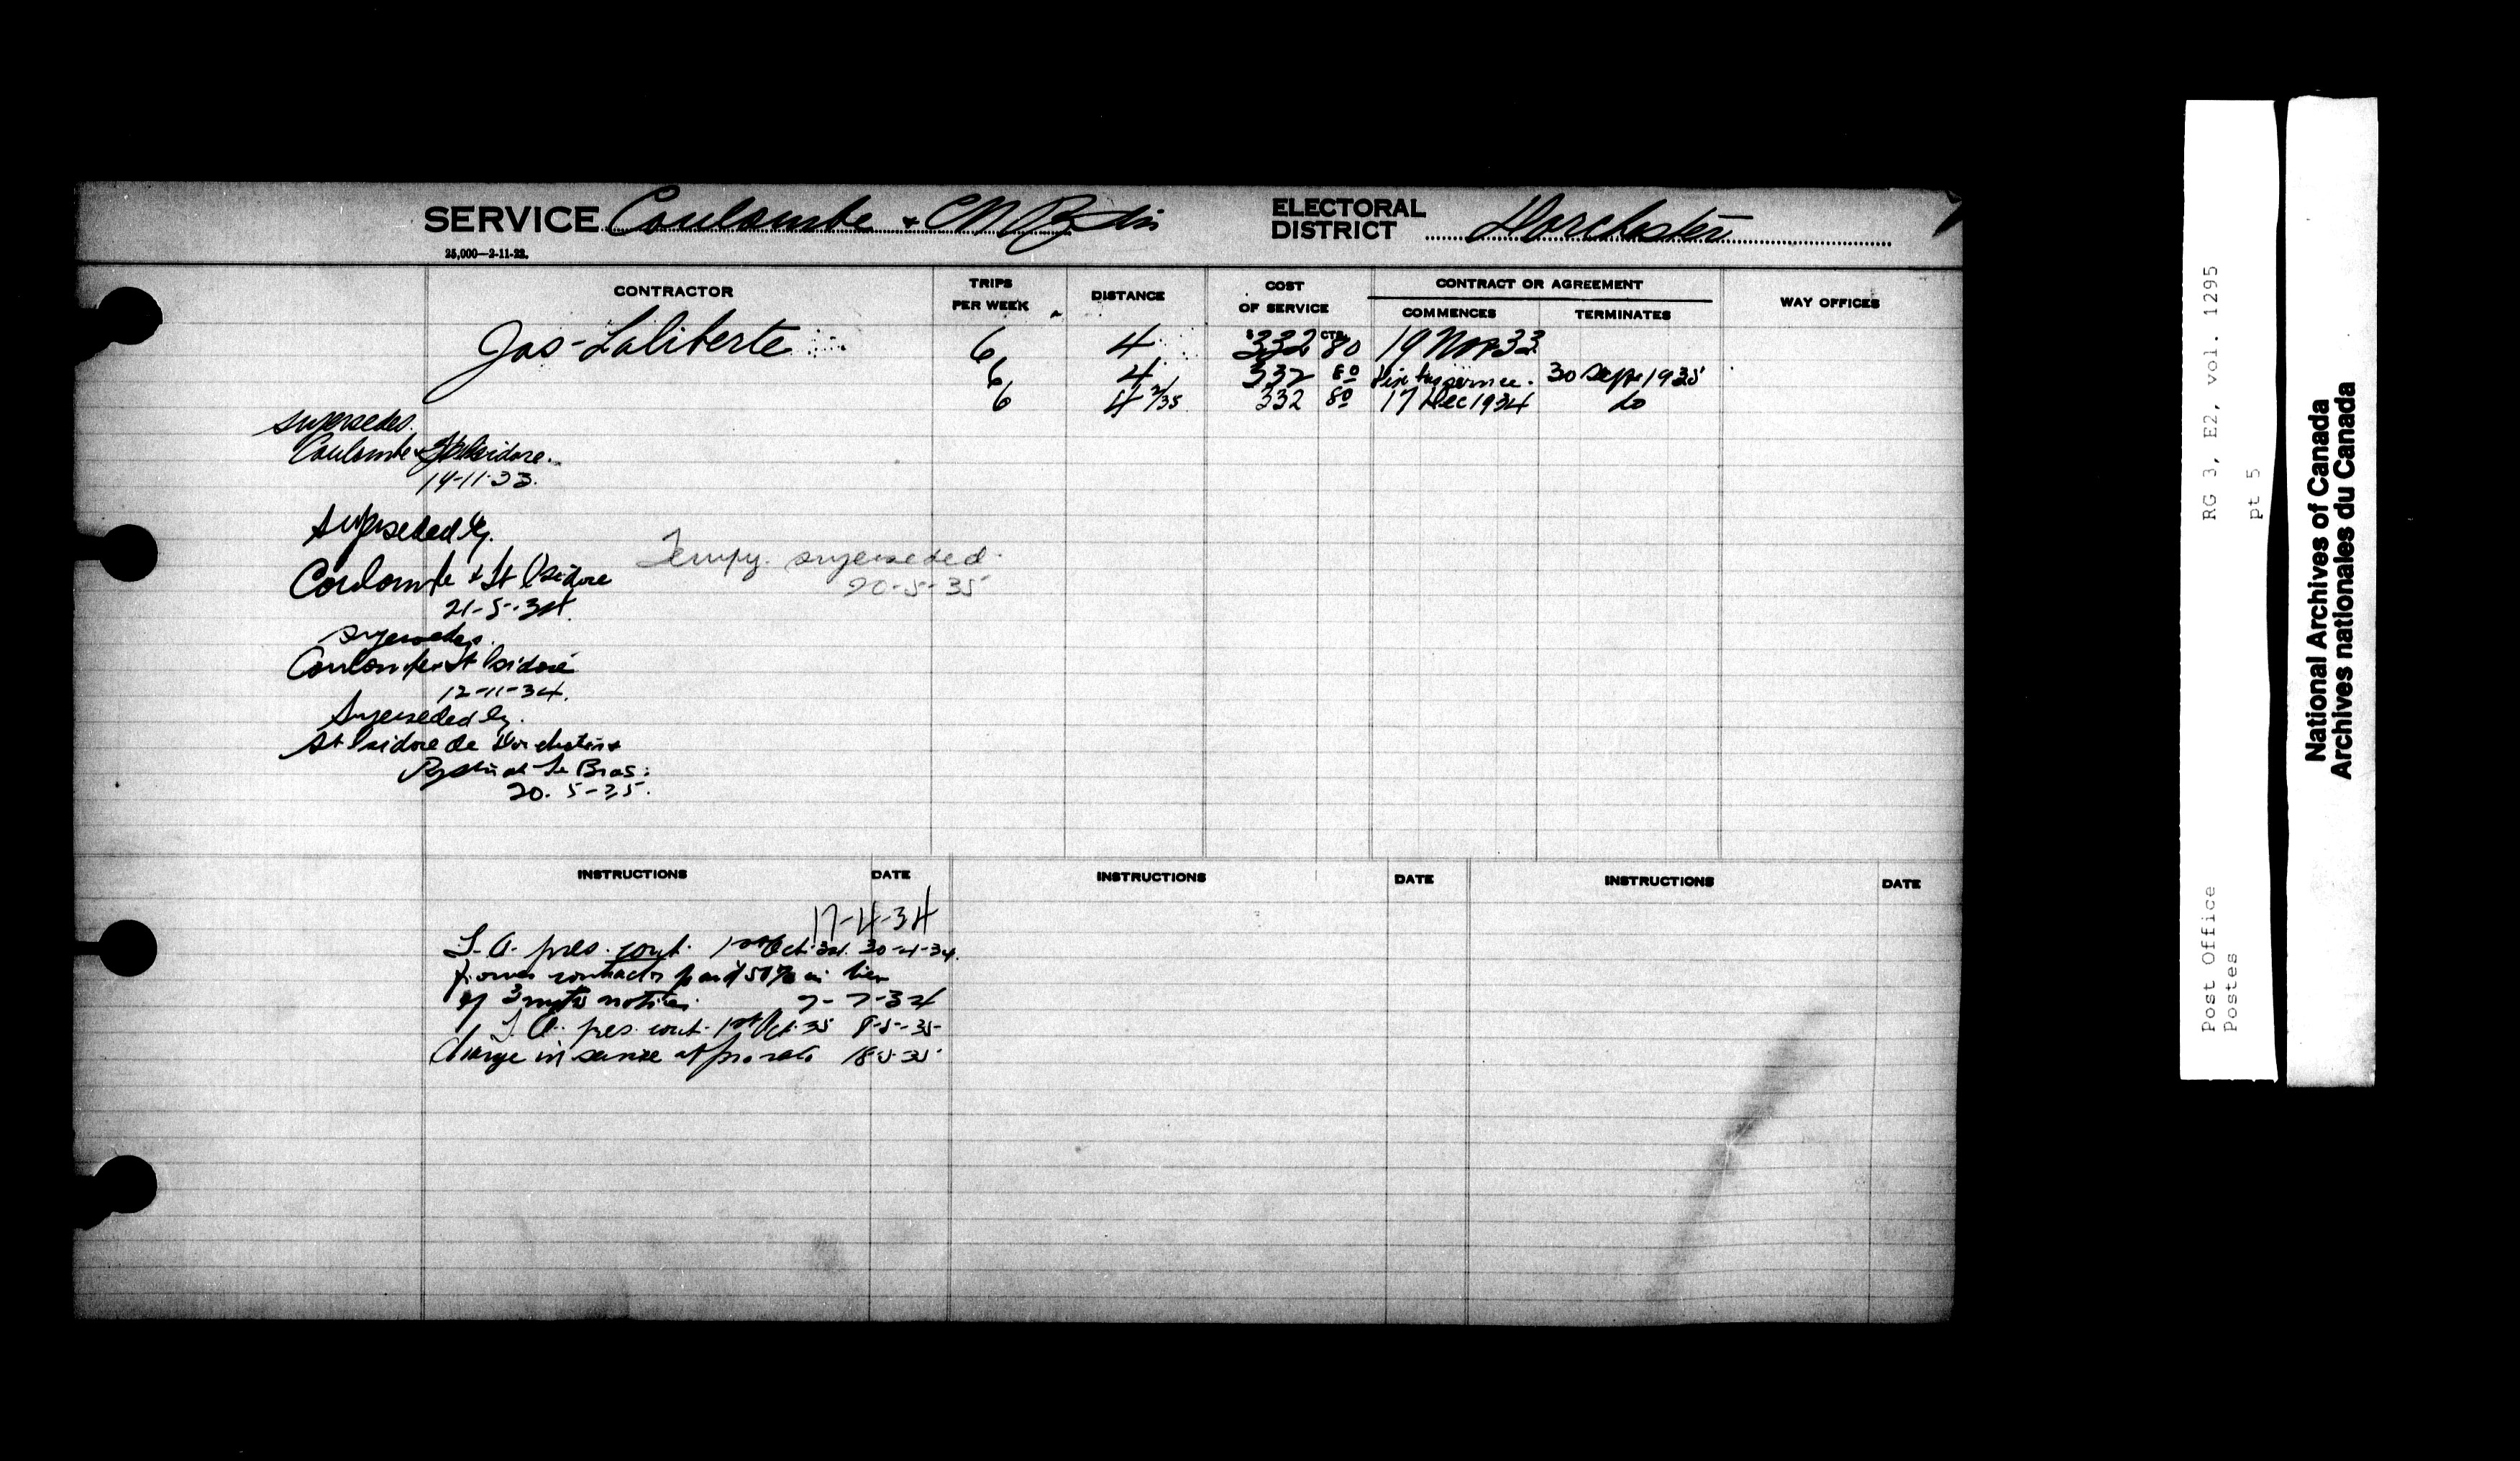 SERVICE Coulombe & CN Ry Stn
ELECTORAL DISTRICT Dorchester
25,000—2-11-22.
CONTRACTOR
TRIPS PER WEEK
DISTANCE
COST OF SERVICE
CONTRACT OR AGREEMENT
COMMENCES
TERMINATES
WAY OFFICES
$ CTS.
Jos. Laliberte 6 4 332 80 19 Nov 33
6 4 332 80 30 Sept 1935
6 4 332 80 17 Dec 1934 do
Supersedes
Coulombe & St Isidore.
19-11-33.
Superseded by
Coulombe & St Isidore
21-5-34.
Tempy. superseded
20-5-35
Supersedes
Coulombe & St Isidore
12-11-34.
Superseded by
St Isidore de Dorchester &
Ry Stn at Le Bras.
20-5-35.
INSTRUCTIONS DATE INSTRUCTIONS DATE INSTRUCTIONS DATE
17-4-34
T.A. pres. cont. 1st Oct. 34. 30-4-34.
former contractor paid 50% in lieu
of 3 mths notice. 7-7-34
T.A. pres. cont. 1st Oct. 35 8-5-35
Change in service approved 18-5-35
Post Office
Postes
RG 3, E2, vol. 1295
pt 5
National Archives of Canada
Archives nationales du Canada